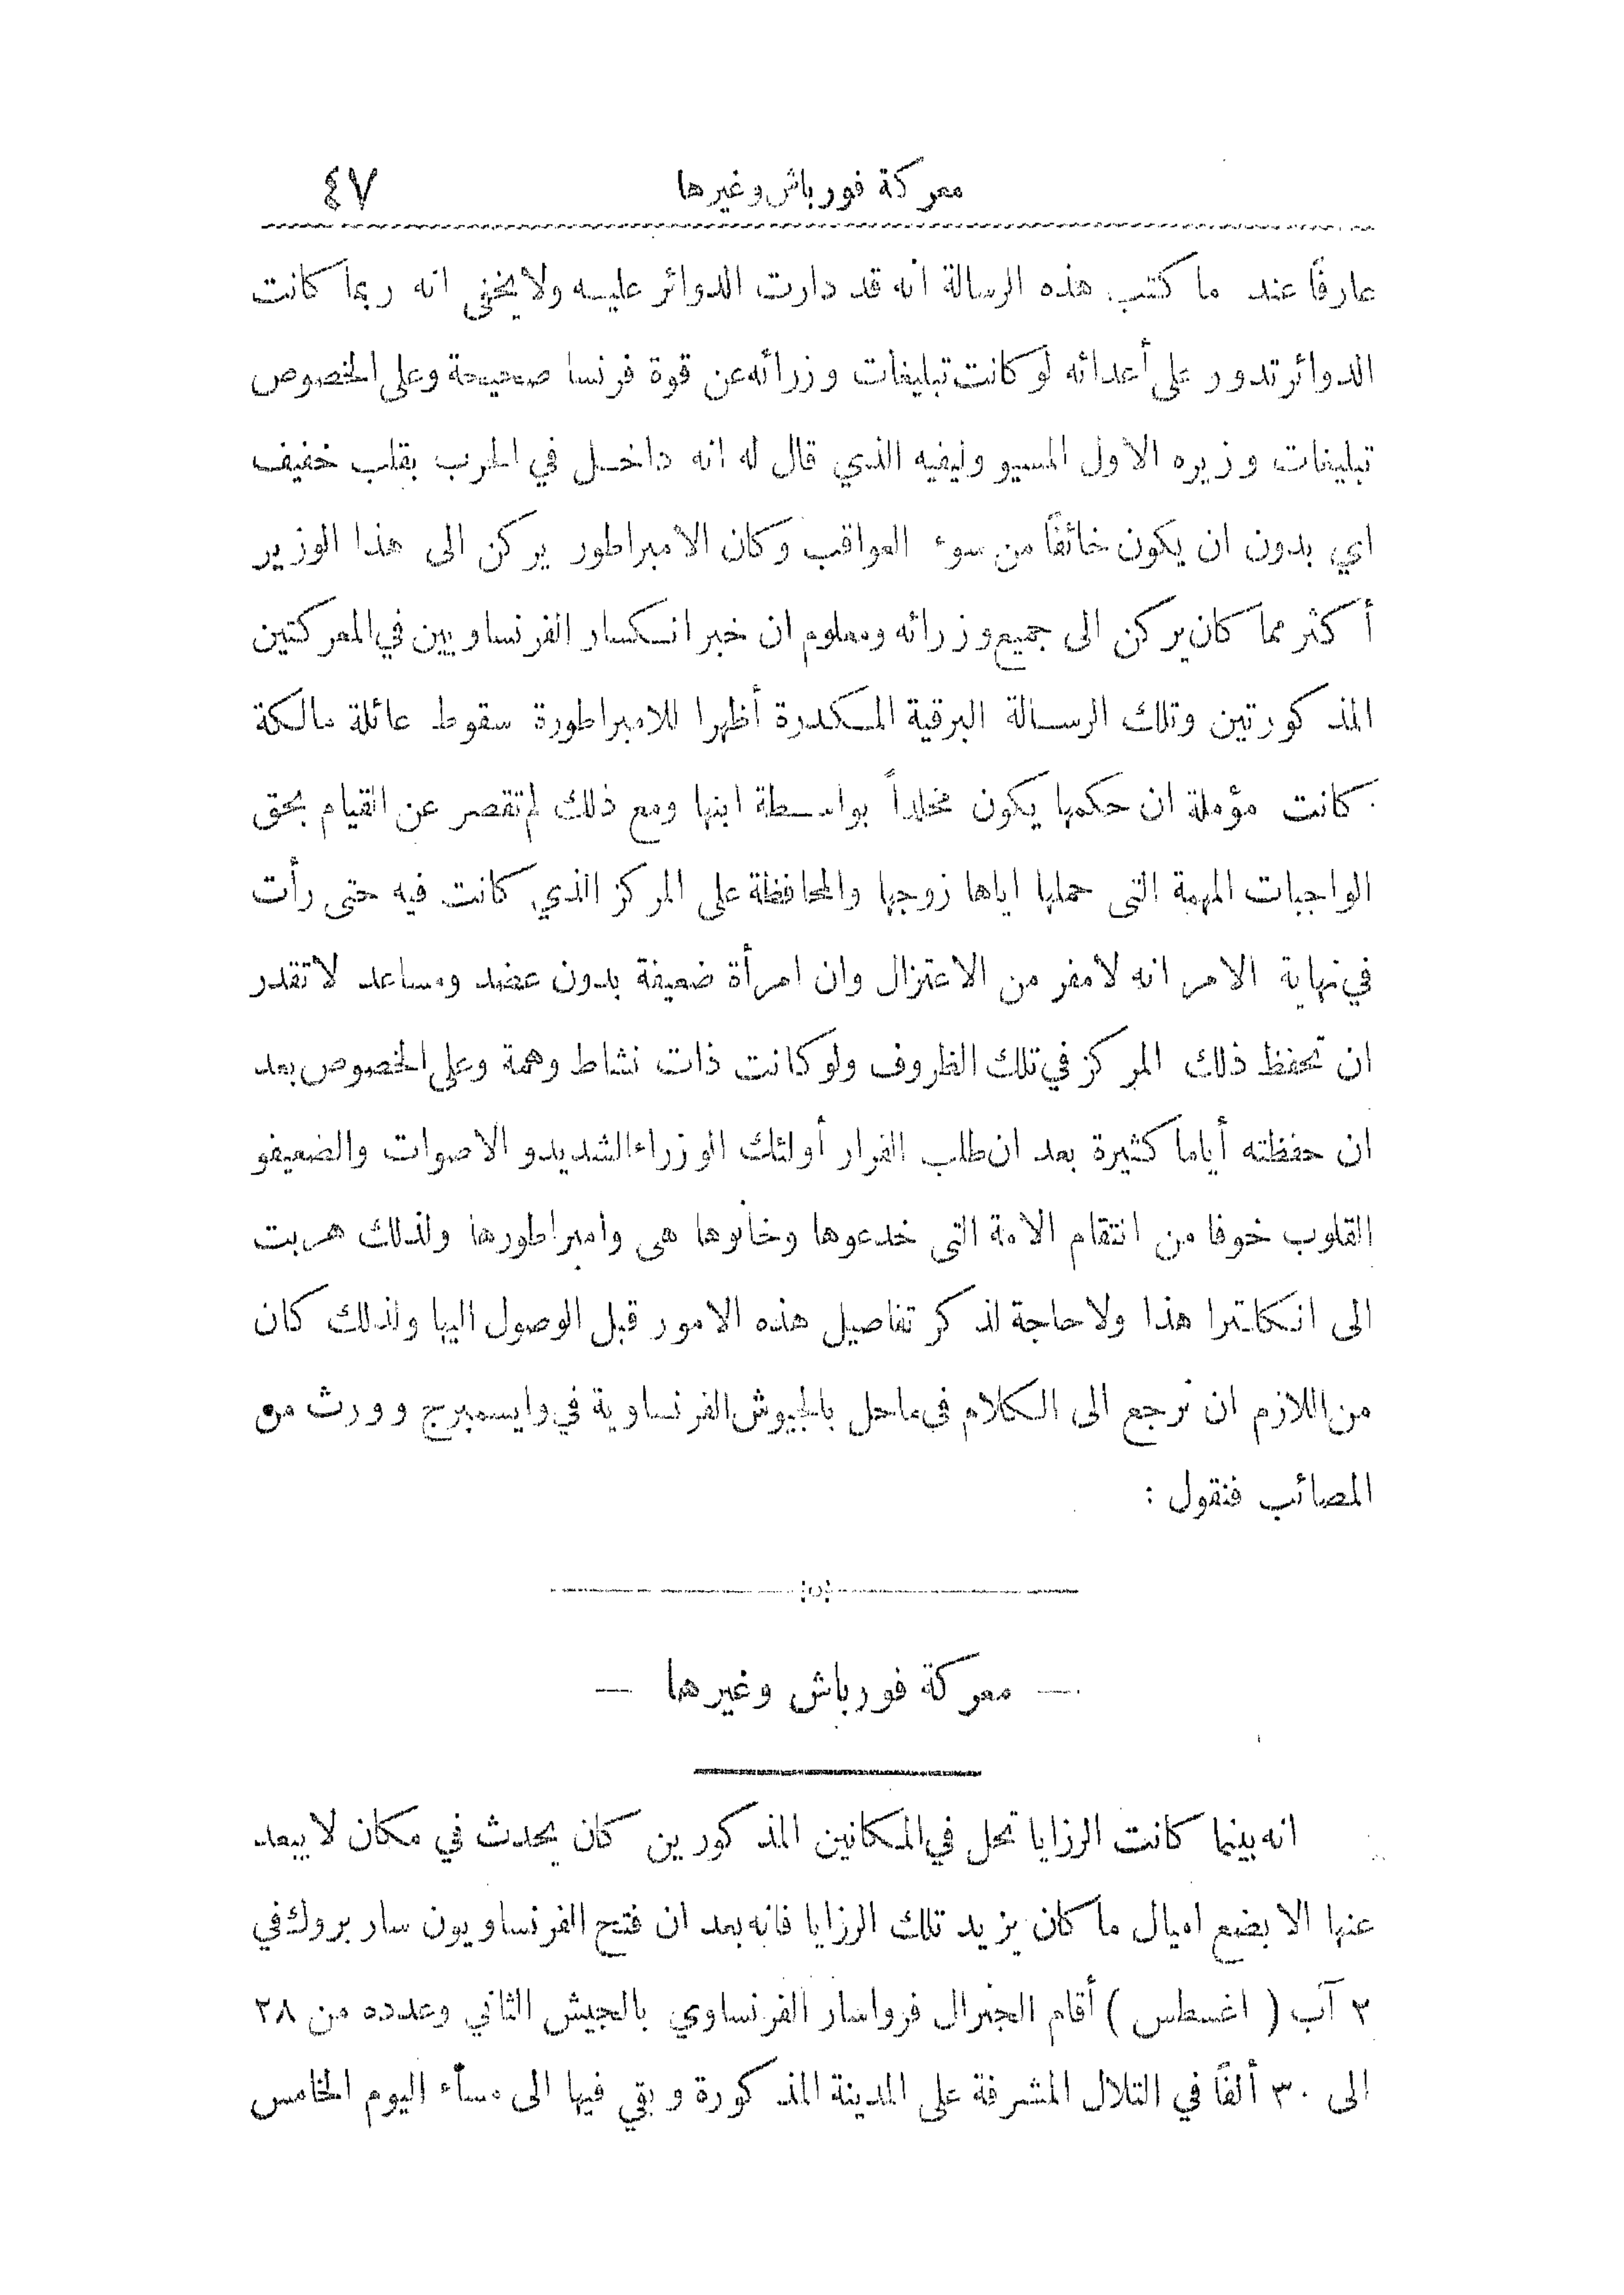 معركة فورباش وغيرها ٤٧
عارفًا عند ما كتب هذه الرسالة انه قد دارت الدوائر عليه ولا يخفى انه ربما كانت
الدوائر تدور على أعدائه لو كانت تبليغات وزرائه عن قوة فرنسا صحيحة وعلى الخصوص
تبليغات وزيره الاول المسيو وليفيه الذي قال له انه داخل في الحرب بقلب خفيف
اي بدون ان يكون خائفًا من سوء العواقب وكان الامبراطور يركن الى هذا الوزير
أكثر مما كان يركن الى جميع وزرائه ومعلوم ان خبر انكسار الفرنساويين في المعركتين
المذكورتين وتلك الرسالة البرقية المكدرة أظهرا للامبراطورة سقوط عائلة مالكة
كانت مؤملة ان حكمها يكون مخلداً بواسطة ابنها ومع ذلك لم تقصر عن القيام بحق
الواجبات المهمة التى حملها اياها زوجها والمحافظة على المركز الذي كانت فيه حتى رأت
في نهاية الامر انه لا مفر من الاعتزال وان امرأة ضعيفة بدون عضد ومساعد لا تقدر
ان تحفظ ذلك المركز في تلك الظروف ولو كانت ذات نشاط وهمة وعلى الخصوص بعد
ان حفظته أياما كثيرة بعد ان طلب الفرار أولئك الوزراء الشديدو الاصوات والضعيفو
القلوب خوفا من انتقام الامة التى خدعوها وخانوها هى وامبراطورها ولذلك هربت
الى انكلترا هذا ولا حاجة لذكر تفاصيل هذه الامور قبل الوصول اليها ولذلك كان
من اللازم ان نرجع الى الكلام فى ما حل بالجيوش الفرنساوية في وايسمبرج وورث من
المصائب فنقول :
— معركة فورباش وغيرها —
انه بينما كانت الرزايا تحل في المكانين المذكورين كان يحدث في مكان لا يبعد
عنها الا بضع اميال ما كان يزيد تلك الرزايا فانه بعد ان فتح الفرنساويون سار بروك في
٢ آب ( اغسطس ) أقام الجنرال فرواسار الفرنساوي بالجيش الثاني وعدده من ٢٨
الى ٣٠ ألفًا في التلال المشرفة على المدينة المذكورة وبقي فيها الى مسآء اليوم الخامس